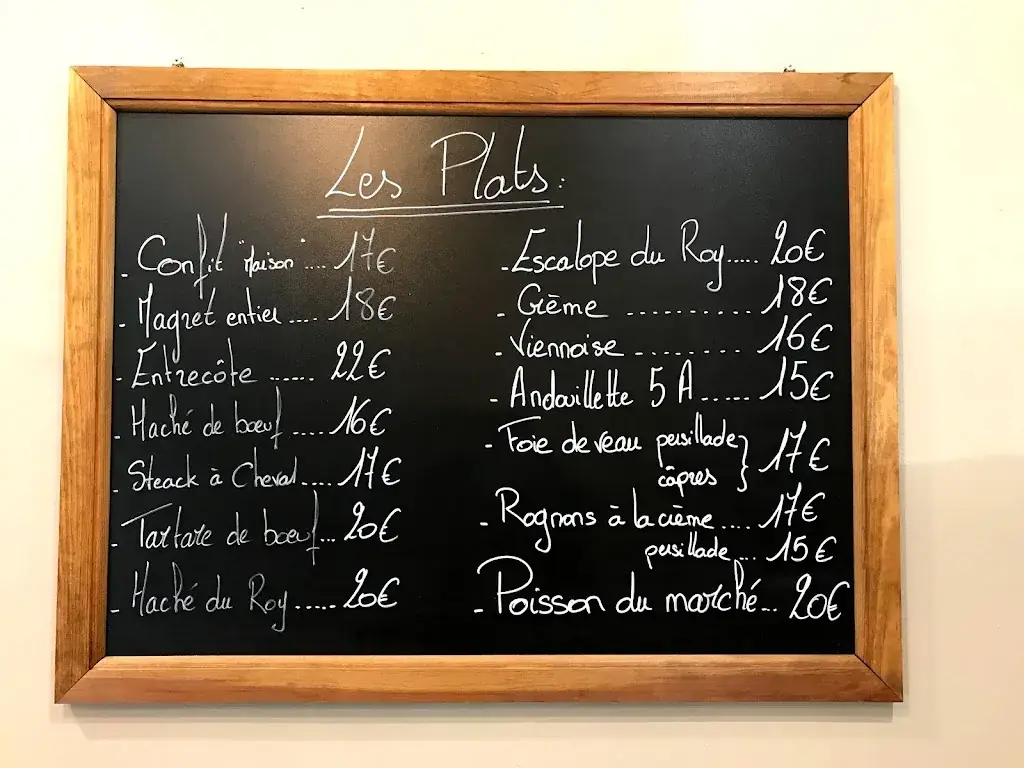 Les Plats :
- Confit "Maison" .... 17€
- Magret entier .... 18€
- Entrecôte ...... 22€
- Haché de bœuf .... 16€
- Steack à Cheval .... 17€
- Tartare de bœuf ... 20€
- Haché du Roy ..... 20€
- Escalope du Roy ..... 20€
- Crème .......... 18€
- Viennoise ......... 16€
- Andouillette 5 A ..... 15€
- Foie de veau persillade } 17€
câpres
- Rognons à la crème .... 17€
persillade ... 15€
- Poisson du marché .. 20€